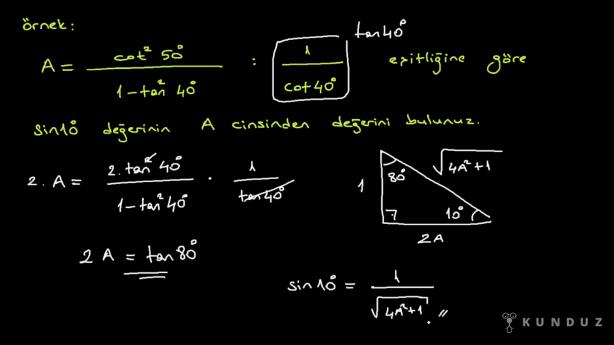 örnek:
A = cot² 50° / 1 - tan² 40° : 1 / cot 40° tan 40° eşitliğine göre
sin10° değerinin A cinsinden değerini bulunuz.
2. A = 2. tan² 40° / 1 - tan² 40° · 1 / tan 40°
2 A = tan 80°
1 80° √4A²+1
10°
2A
sin 10° = 1 / √4A²+1 . //
KUNDUZ